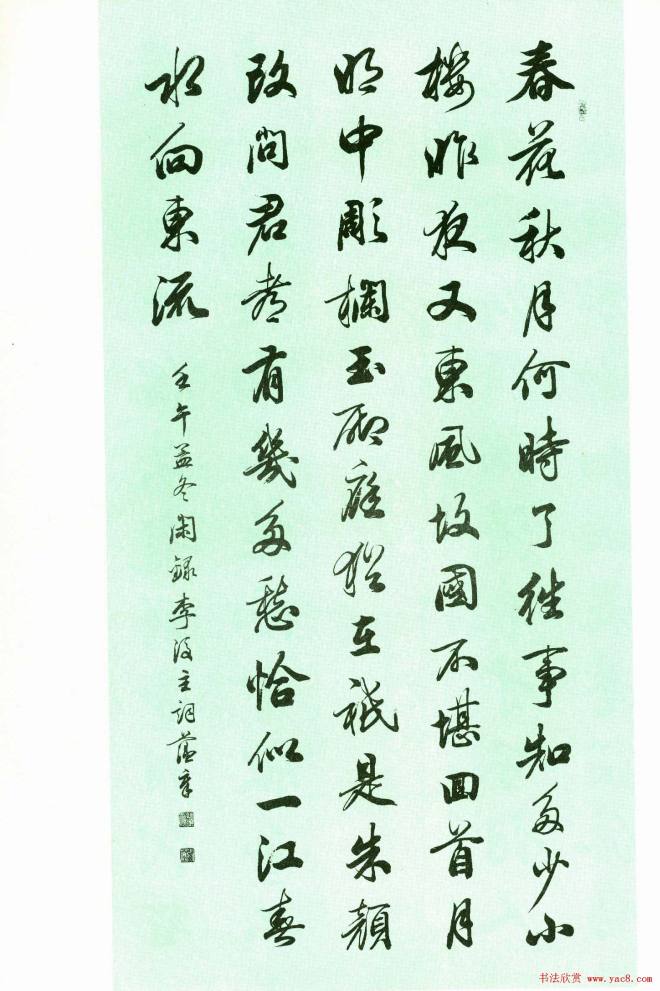 春花秋月何時了往事知多少小
樓昨夜又東風故國不堪回首月
明中彫欄玉砌應猶在祇是朱顏
改問君都有幾多愁恰似一江春
水向東流
壬午孟冬閑錄李後主詞
书法欣赏 www.yac8.com